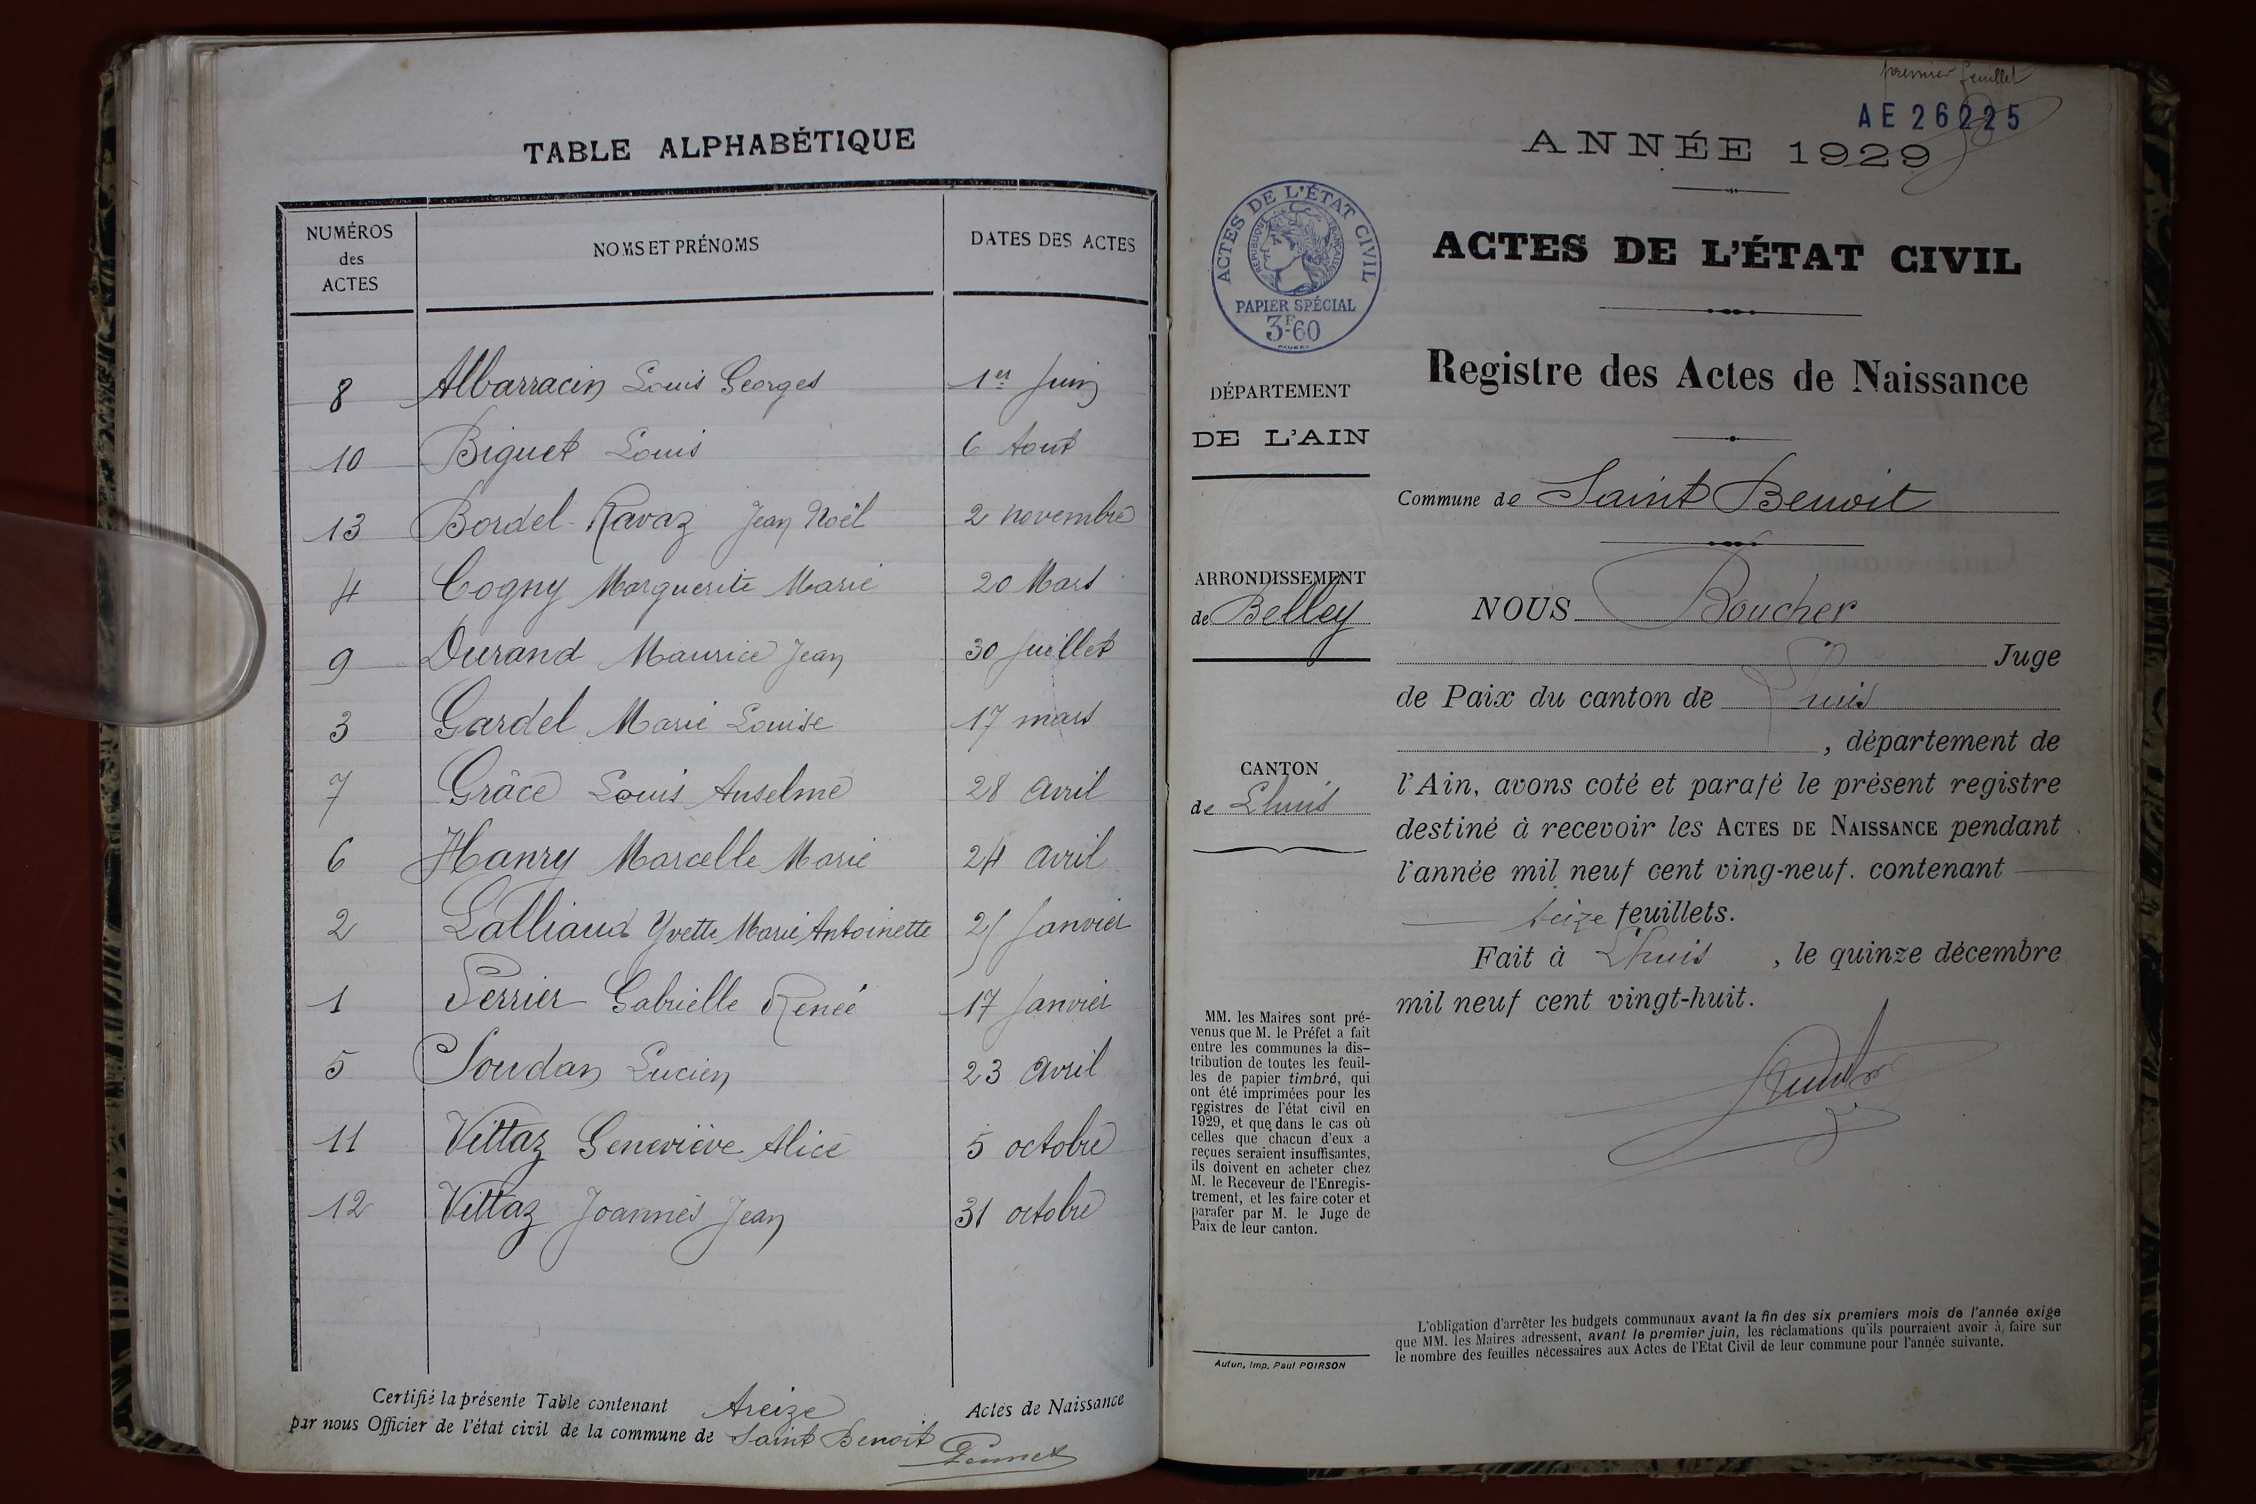 TABLE ALPHABÉTIQUE
NUMÉROS des ACTES NOMS ET PRÉNOMS DATES DES ACTES
8 Albarracin Louis Georges 1er Juin
10 Biguet Louis 6 Aout
13 Bordel-Ravaz Jean Noël 2 novembre
4 Cogny Marguerite Marie 20 Mars
9 Durand Maurice Jean 30 Juillet
3 Gardel Marie Louise 17 mars
7 Grâce Louis Anselme 28 avril
6 Hanry Marcelle Marie 24 avril
2 Lalliaud Yvette Marie Antoinette 25 Janvier
1 Perrier Gabrielle Renée 17 Janvier
5 Soudan Lucien 23 avril
11 Vettaz Geneviève Alice 5 octobre
12 Vettaz Joannès Jean 31 octobre
Certifié la présente Table contenant treize Actes de Naissance
par nous Officier de l'état civil de la commune de Saint Benoit
premier feuillet
AE 26225
ANNÉE 1929
ACTES DE L'ÉTAT CIVIL
RÉPUBLIQUE FRANÇAISE
PAPIER SPÉCIAL
3F60
ACTES DE L'ÉTAT CIVIL
Registre des Actes de Naissance
DÉPARTEMENT
DE L'AIN
ARRONDISSEMENT
de Belley
CANTON
de Lhuis
MM. les Maires sont pré-
venus que M. le Préfet a fait
entre les communes la dis-
tribution de toutes les feuil-
les de papier timbré, qui
ont été imprimées pour les
registres de l'état civil en
1929, et que dans le cas où
celles que chacun d'eux a
reçues seraient insuffisantes,
ils doivent en acheter chez
M. le Receveur de l'Enregis-
trement, et les faire coter et
parafer par M. le Juge de
Paix de leur canton.
Autun, Imp. Paul POIRSON
Commune de Saint Benoit
NOUS Boucher
Juge
de Paix du canton de Lhuis
, département de
l'Ain, avons coté et parafé le présent registre
destiné à recevoir les ACTES DE NAISSANCE pendant
l'année mil neuf cent ving-neuf. contenant
seize feuillets.
Fait à Lhuis , le quinze décembre
mil neuf cent vingt-huit.
L'obligation d'arrêter les budgets communaux avant la fin des six premiers mois de l'année exige
que MM. les Maires adressent, avant le premier juin, les réclamations qu'ils pourraient avoir à faire sur
le nombre des feuilles nécessaires aux Actes de l'Etat Civil de leur commune pour l'année suivante.